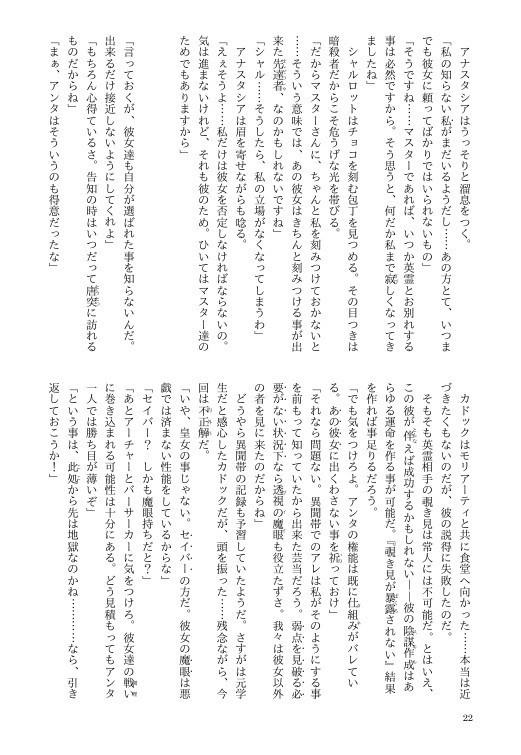 アナスタシアはうっそりと溜息をつく。
「私の知らない私がまだいるようだし……あの方とて、いつま
でも彼女に頼ってばかりではいられないもの」
「そうですね……マスターであれば、いつか英霊とお別れする
事は必然ですから。そう思うと、何だか私まで寂しくなってき
ましたね」
シャルロットはチョコを刻む包丁を見つめる。その目つきは
暗殺者だからこそ危うげな光を帯びる。
「だからマスターさんに、ちゃんと私を刻みつけておかないと
……そういう意味では、あの彼女はきちんと刻みつける事が出
来た先達者、なのかもしれないですね」
「シャル……そうしたら、私の立場がなくなってしまうわ」
アナスタシアは眉を寄せながらも唸る。
「えぇそうよ……私だけは彼女を否定しなければならないの。
気は進まないけれど、それも彼のため。ひいてはマスター達の
ためでもありますから」
「言っておくが、彼女達も自分が選ばれた事を知らないんだ。
出来るだけ接近しないようにしてくれよ」
「もちろん心得ているさ。告知の時はいつだって唐突に訪れる
ものだからね」
「まぁ、アンタはそういうのも得意だったな」
カドックはモリアーティと共に食堂へ向かった……本当は近
づきたくもないのだが、彼の説得に失敗したのだ。
そもそも英霊相手の覗き見は常人には不可能だ。とはいえ、
この彼が伴えば成功するかもしれない――彼の陰謀作成はあ
らゆる運命を作る事が可能だ。『覗き見が暴露されない』結果
を作れば事足りるだろう。
「でも気をつけろよ。アンタの権能は既に仕組みがバレてい
る。あの彼女に出くわさない事を祈っておけ」
「それなら問題ない。異聞帯でのアレは私がそのようにする事
を前もって知っていたから出来た芸当だろう。弱点を見破る必
要がない状況下なら透視の魔眼も役立たずさ。我々は彼女以外
の者を見に来たのだからね」
どうやら異聞帯の記録も予習していたようだ。さすがは元学
生だと感心したカドックだが、頭を振った……残念ながら、今
回は不正解だ。
「いや、皇女の事じゃない。セイバーの方だ。彼女の魔眼は悪
戯では済まない性能をしているからな」
「セイバー？　しかも魔眼持ちだと？」
「あとアーチャーとバーサーカーに気をつけろ。彼女達の戦い
に巻き込まれる可能性は十分にある。どう見積もってもアンタ
一人では勝ち目が薄いぞ」
「という事は、此処から先は地獄なのかね…………なら、引き
返しておこうか！」
22